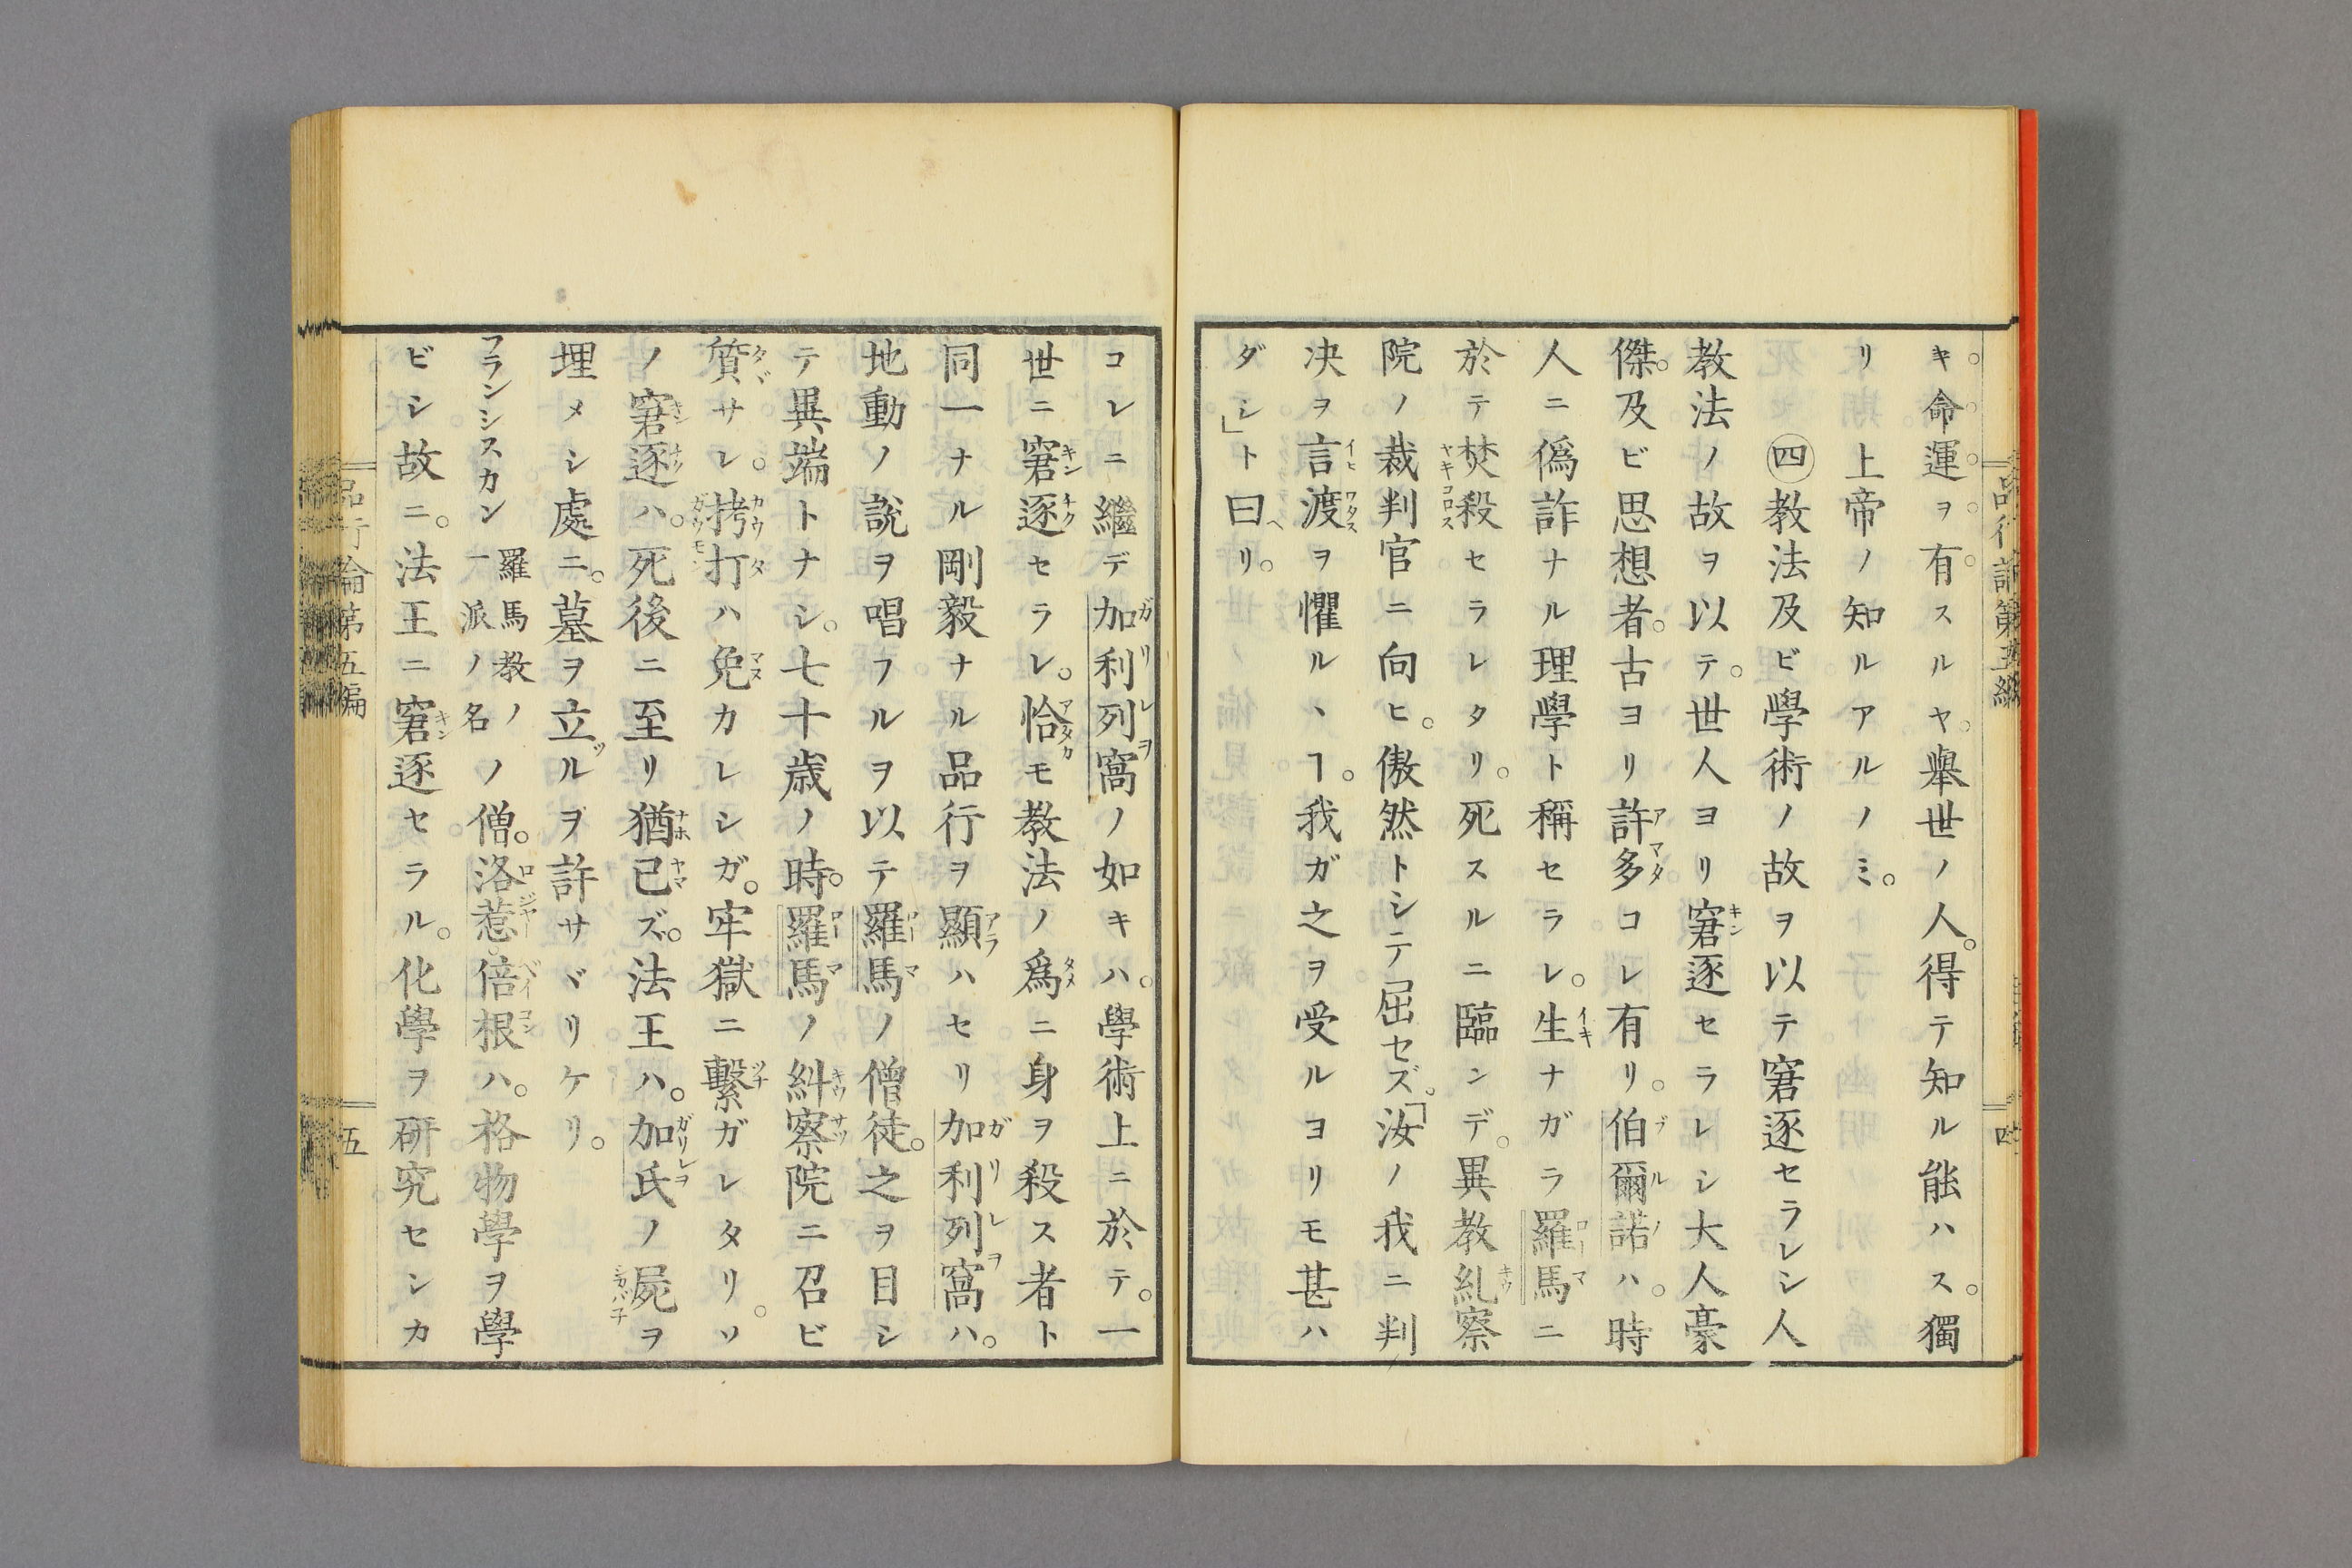 キ命運ヲ有スルヤ。擧世ノ人。得テ知ル能ハス。獨
リ上帝ノ知ルアルノミ。
㊃教法及ビ學術ノ故ヲ以テ窘逐セラレシ人
教法ノ故ヲ以テ。世人ヨリ窘逐セラレシ大人豪
傑。及ビ思想者。古ヨリ許多コレ有リ。伯爾諾ハ。時
人ニ僞詐ナル理學ト稱セラレ。生ナガラ羅馬ニ
於テ焚殺セラレタリ。死スルニ臨ンデ。異教糺察
院ノ裁判官ニ向ヒ。傲然トシテ屈セズ。「汝ノ我ニ判
决ヲ言渡ヲ懼ルヽヿ。我ガ之ヲ受ルヨリモ甚ハ
ダシ」ト曰ヘリ。
コレニ繼デ加利列窩ノ如キハ。學術上ニ於テ。一
世ニ窘逐セラレ。恰モ教法ノ爲ニ身ヲ殺ス者ト
同一ナル剛毅ナル品行ヲ顯ハセリ加利列窩ハ。
地動ノ説ヲ唱フルヲ以テ羅馬ノ僧徒。之ヲ目シ
テ異端トナシ。七十歳ノ時。羅馬ノ糾察院ニ召ビ
質サレ。拷打ハ免カレシガ。牢獄ニ繫ガレタリ。ソ
ノ窘逐ハ。死後ニ至リ猶已ズ。法王ハ。加氏ノ屍ヲ
埋メシ處ニ。墓ヲ立ルヲ許サヾリケリ。
フランシスカン羅馬教ノ一派ノ名ノ僧。洛惹。倍根ハ。格物學ヲ學
ビシ故ニ。法王ニ窘逐セラル。化學ヲ研究センカ
品行論第五編
五